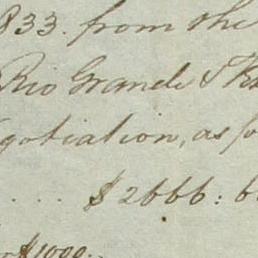 1833. from the
Rio Grande &
gotiation, as
.... $2666: 6
$1000.